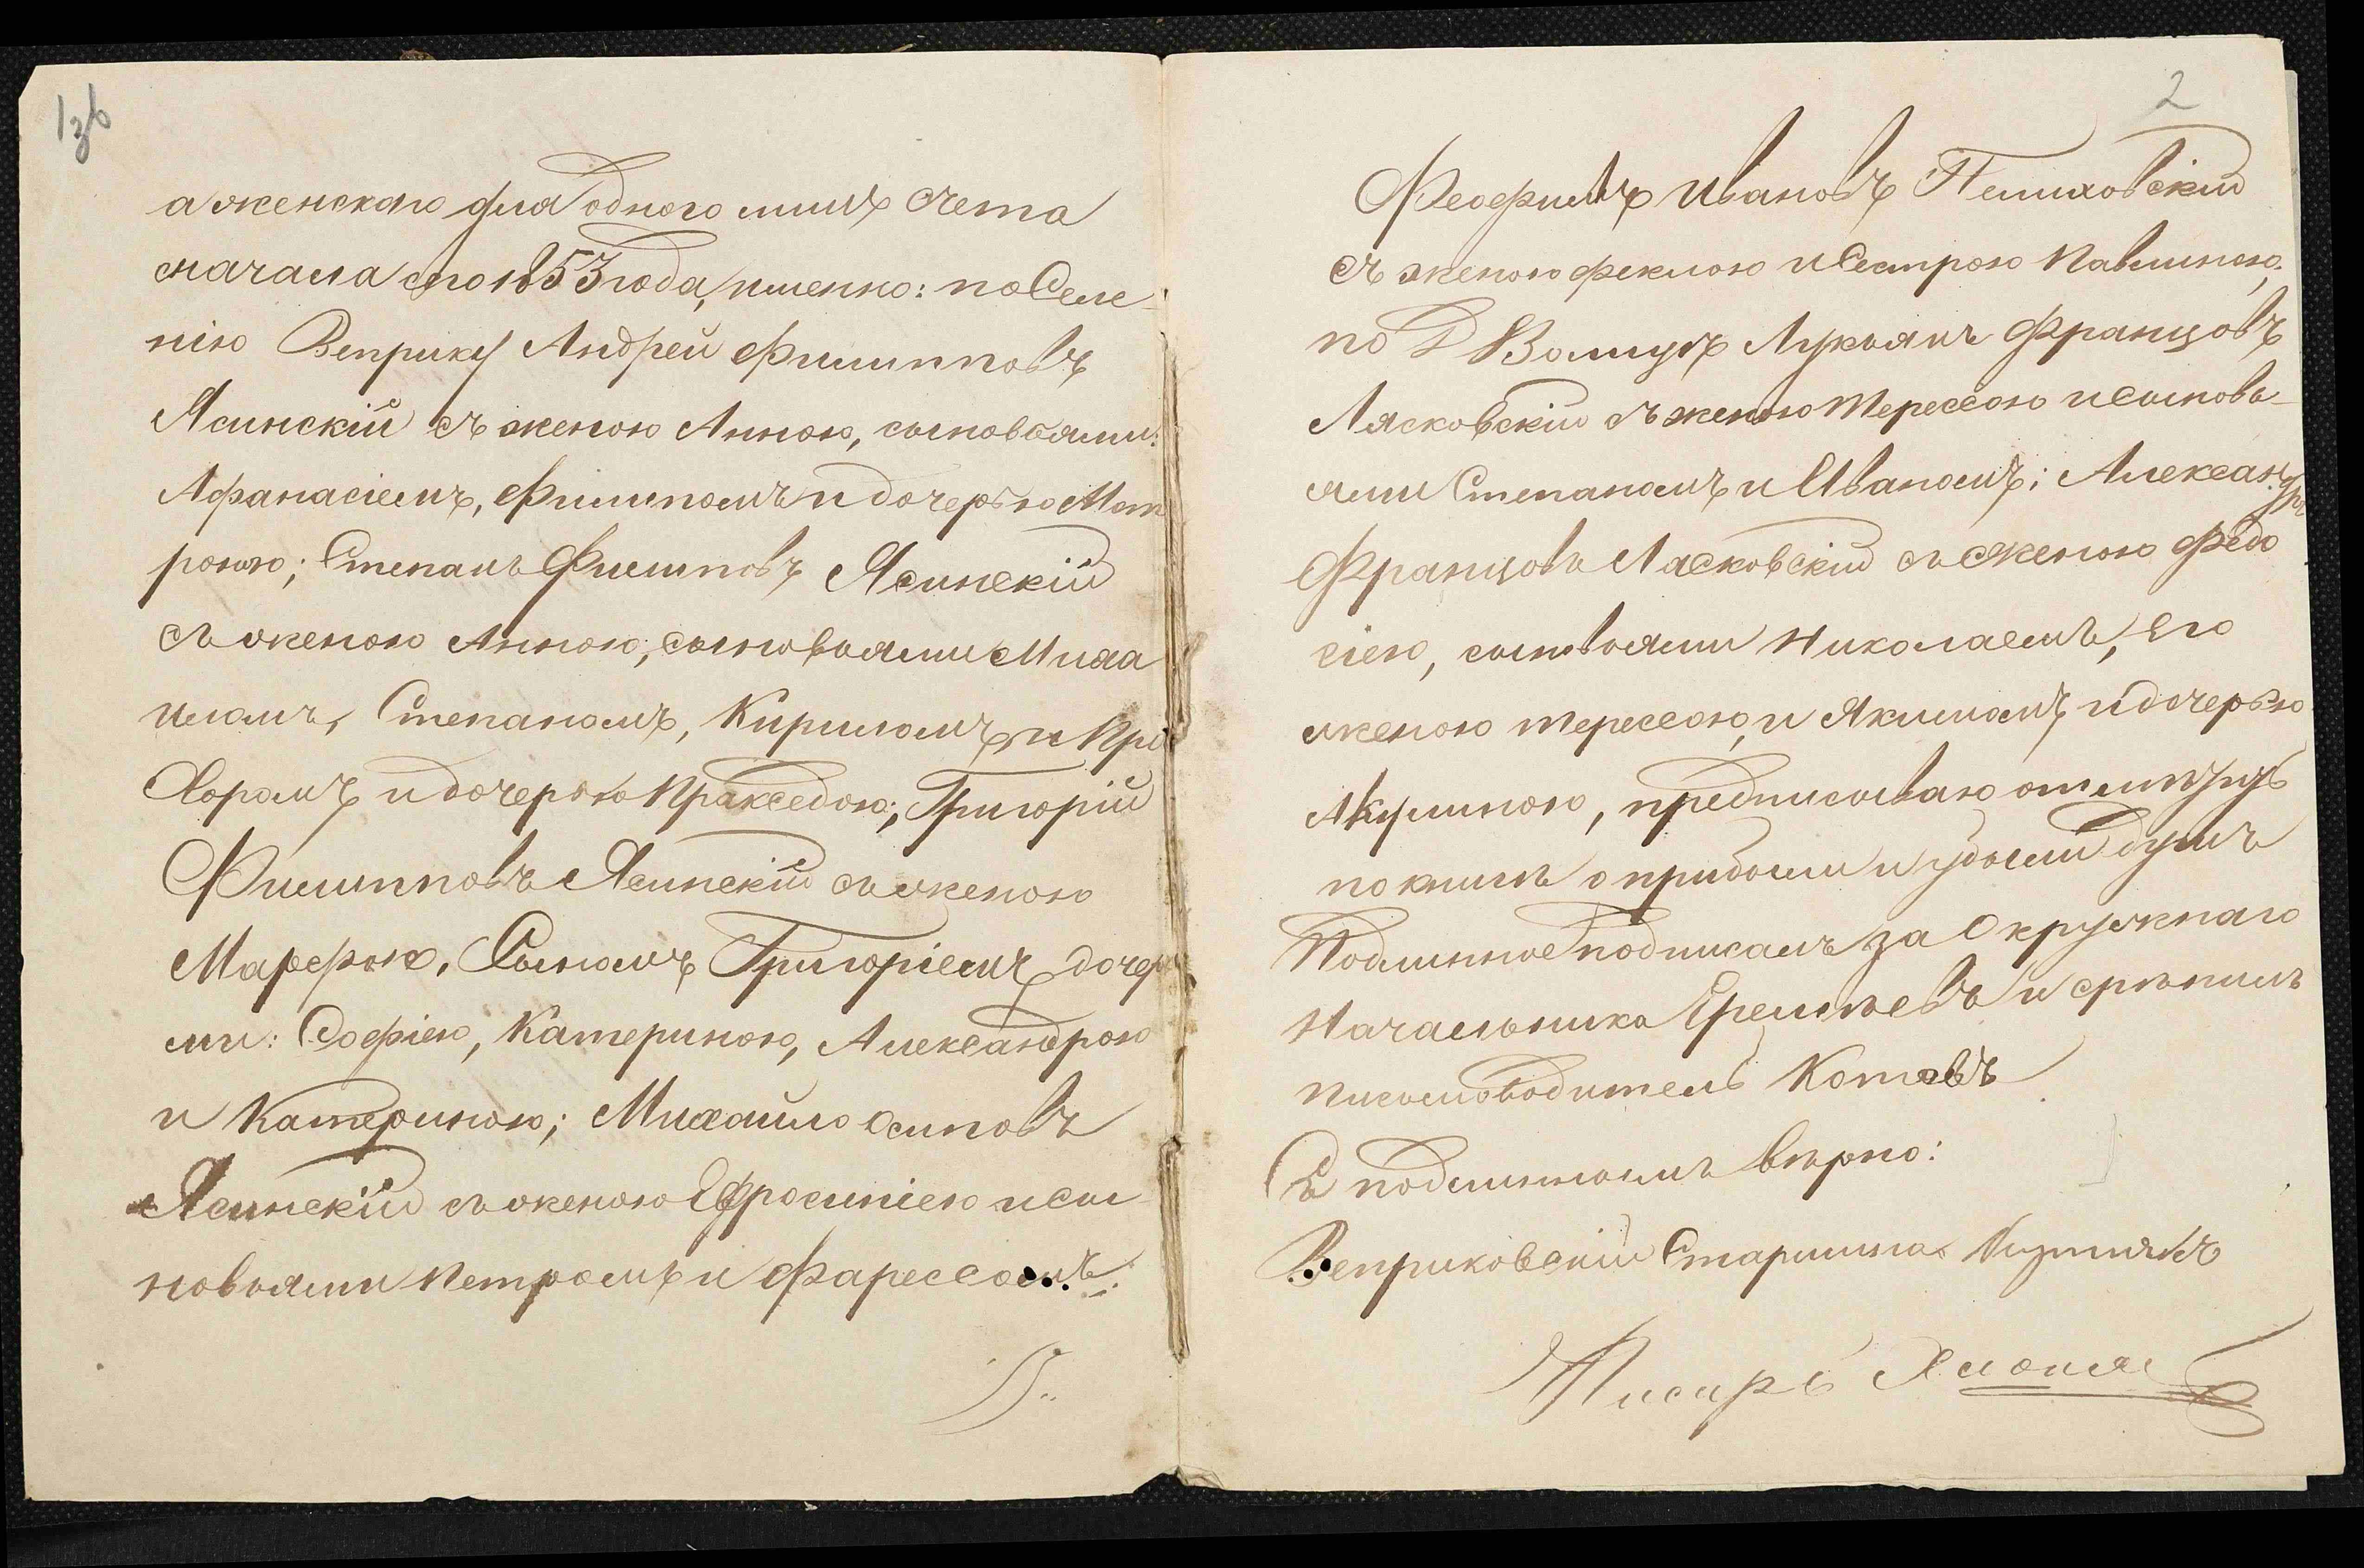 1зв
а женскаго для одного лишь счета
сначала сего 1853 года, именно: по Селе
нію Веприку Андрей Филипповъ
Ясинскій съ женою Анною, сыновьями:
Афанасіемъ, Филипомъ и дочерью Мат
роною; Степанъ Филиповъ Ясинскій
съ женою Анною, сыновьями Миха
иломъ, Степаномъ, Кириломъ и Прі
Хоромъ и дочерью Пракседою; Григорій
Филипповъ Ясинскій съ женою
Марфою, Сыномъ Григоріемъ дочерь
ми: Софіею, Катериною, Александрою
и Катериною; Михайло Осиповъ
Ясинскій съ женою Ефросиніею и сы
новьями Петромъ и Фарессомъ.
2
Феофилъ Ивановъ
съ женою Феклою и Сестрою Павлиною,
по Д Лукьянъ Францовъ
Лясковскій съ женою Терессою и сыновь
ями Степаномъ и Иваномъ; Александръ
Францовъ Лясковскій съ женою Федо
сіею, сыновьями Николаемъ, Его
женою Терессою, и Якимомъ и дочерью
Акулиною, предписываю отмѣтить
по книгѣ о прибыли и убыли душъ
Подлинное подписалъ за Окружнаго
Начальника Еремѣевъ и скрѣпилъ
письмоводитель Котовъ
Съ подлиннымъ вѣрно:
Веприковскій Старшина
Писарь